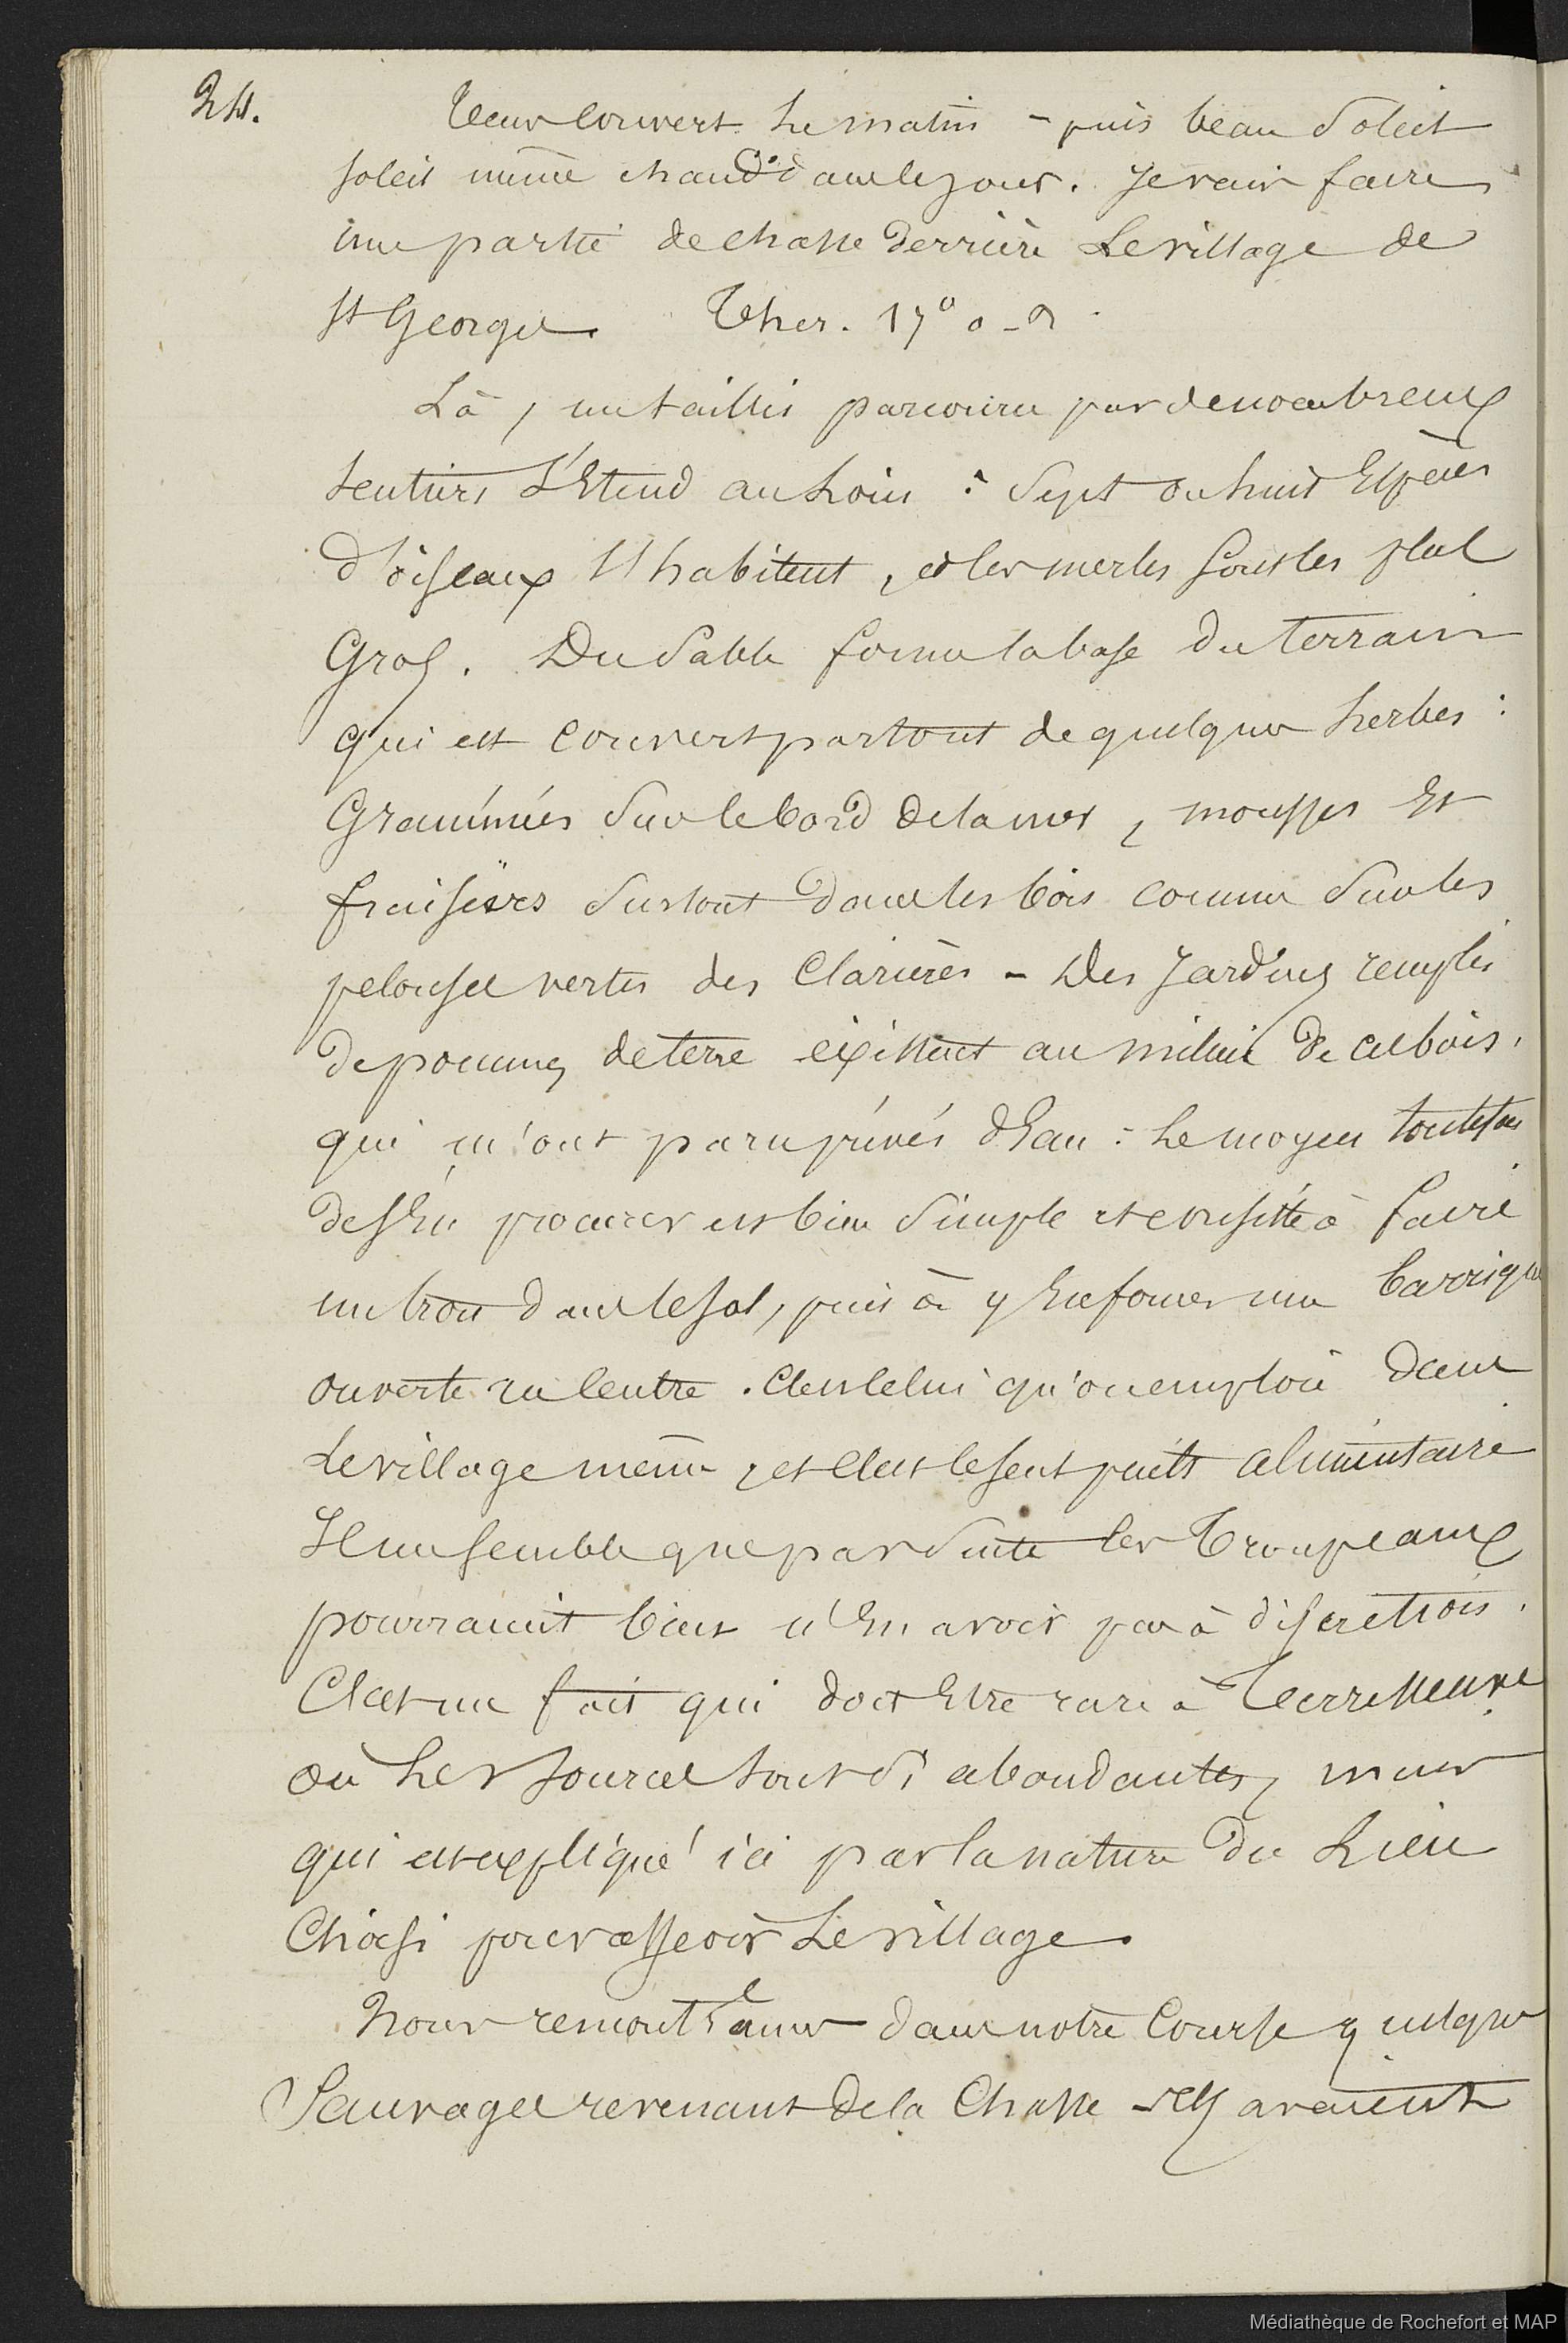 24. Temps couvert le matin - puis beau Soleil
soleil même chaud dans le jour. Je vais faire
une partie de chasse derrière Le village de
St George. Ther. 17° o-
Là, un taillis parcouru par de nombreux
sentiers s'Etend au Loin : Sept ou huit Espèces
d'oiseaux l'habitent, et les merles sont les plus
Gros. Du Sable forme la base du terrain
qui est couvert partout de quelques herbes :
Graminées Sur le bord de la mer, mousses Et
fraisiers Surtout dans les bois comme Sur les
pelouses vertes des Clarières - Des Jardins remplis
de pommes de terre existent au milieu de ces bois,
qui m'ont paru privés d'Eau : Le moyen toutefois
de s'En procurer est bien Simple et consiste à faire
un trou dans le sol, puis à y Enfoncer une barrique
ouverte au Centre. C'est celui qu'on emploie dans
Le village même, et C'est le seul puits alimentaire
Il me semble que par Suite les Troupeaux
pourraient bien n'En avoir pas à discrétion.
C'est un fait qui doit Etre rare à Terre Neuve
où Les Sources sont Si abondantes, mais
qui est expliqué ici par la nature du Lieu
Choisi pour asseoir Le village.
Nous remontrâmes dans notre Course quelques
Sauvages revenant de la Chasse - Ils avaient
Médiathèque de Rochefort et MAP